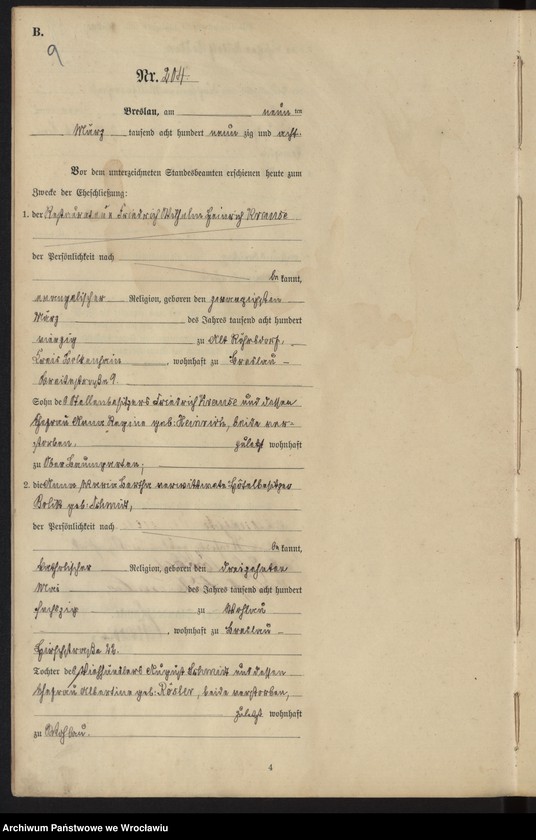 B.
9
Nr. 204
Breslau, am neun ten
März tausend acht hundert neun zig und acht
Vor dem unterzeichneten Standesbeamten erschienen heute zum
Zwecke der Eheschließung:
1. der Restaurateur Friedrich Wilhelm Heinrich Krause
der Persönlichkeit nach
be kannt,
evangelischer Religion, geboren den zwanzigsten
März des Jahres tausend acht hundert
vierzig zu Alt Röhrsdorf,
Kreis Bolkenhain, wohnhaft zu Breslau -
Breitestraße 9.
Sohn des Stellenbesitzers Friedrich Krause und dessen
Ehefrau Anna Regine geb: Heinrich, beide ver-
storben. zuletzt wohnhaft
zu Ober Baumgarten;
2. die Anna Maria Bertha verwittwete Hôtelbesitzer
geb: Schmidt,
der Persönlichkeit nach
be kannt,
katholischer Religion, geboren den dreizehnten
Mai des Jahres tausend acht hundert
sechszig zu Wohlau
, wohnhaft zu Breslau -
Hirschstraße
Tochter des Viehhändlers August Schmidt und dessen
Ehefrau Albertine geb: Rösler, beide verstorben,
zuletzt wohnhaft
zu Wohlau.
4
Archiwum Państwowe we Wrocławiu